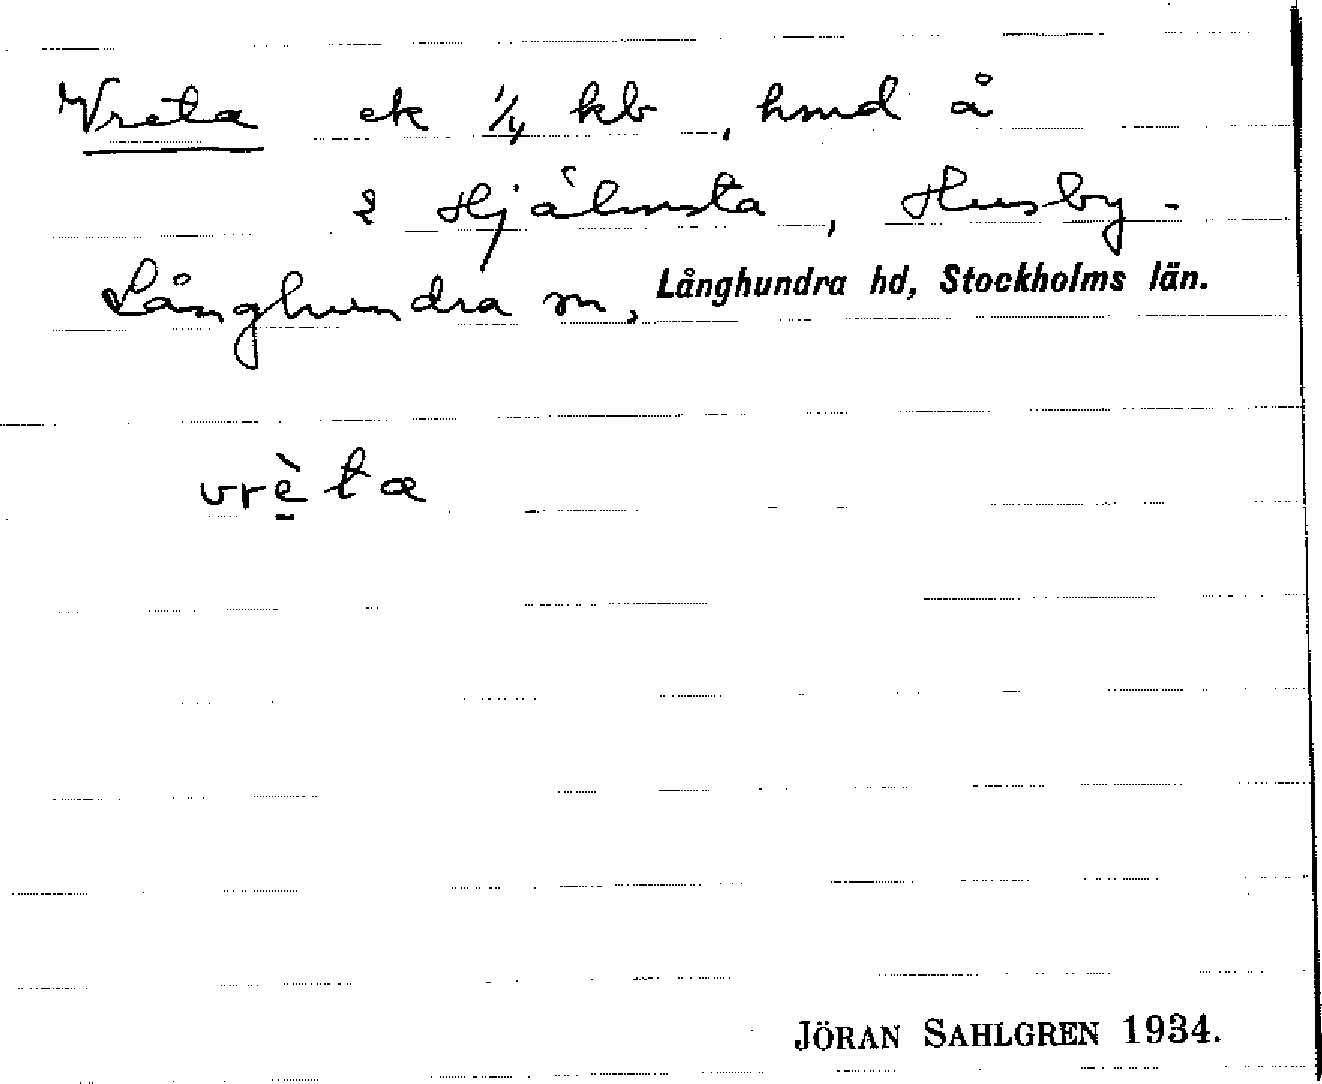 Vreta ek 1/4 kb, hmd å
2 Hjälmsta, Husby-
Långhundra sn, Långhundra hd, Stockholms län.
vrè̱ta
JÖRAN SAHLGREN 1934.